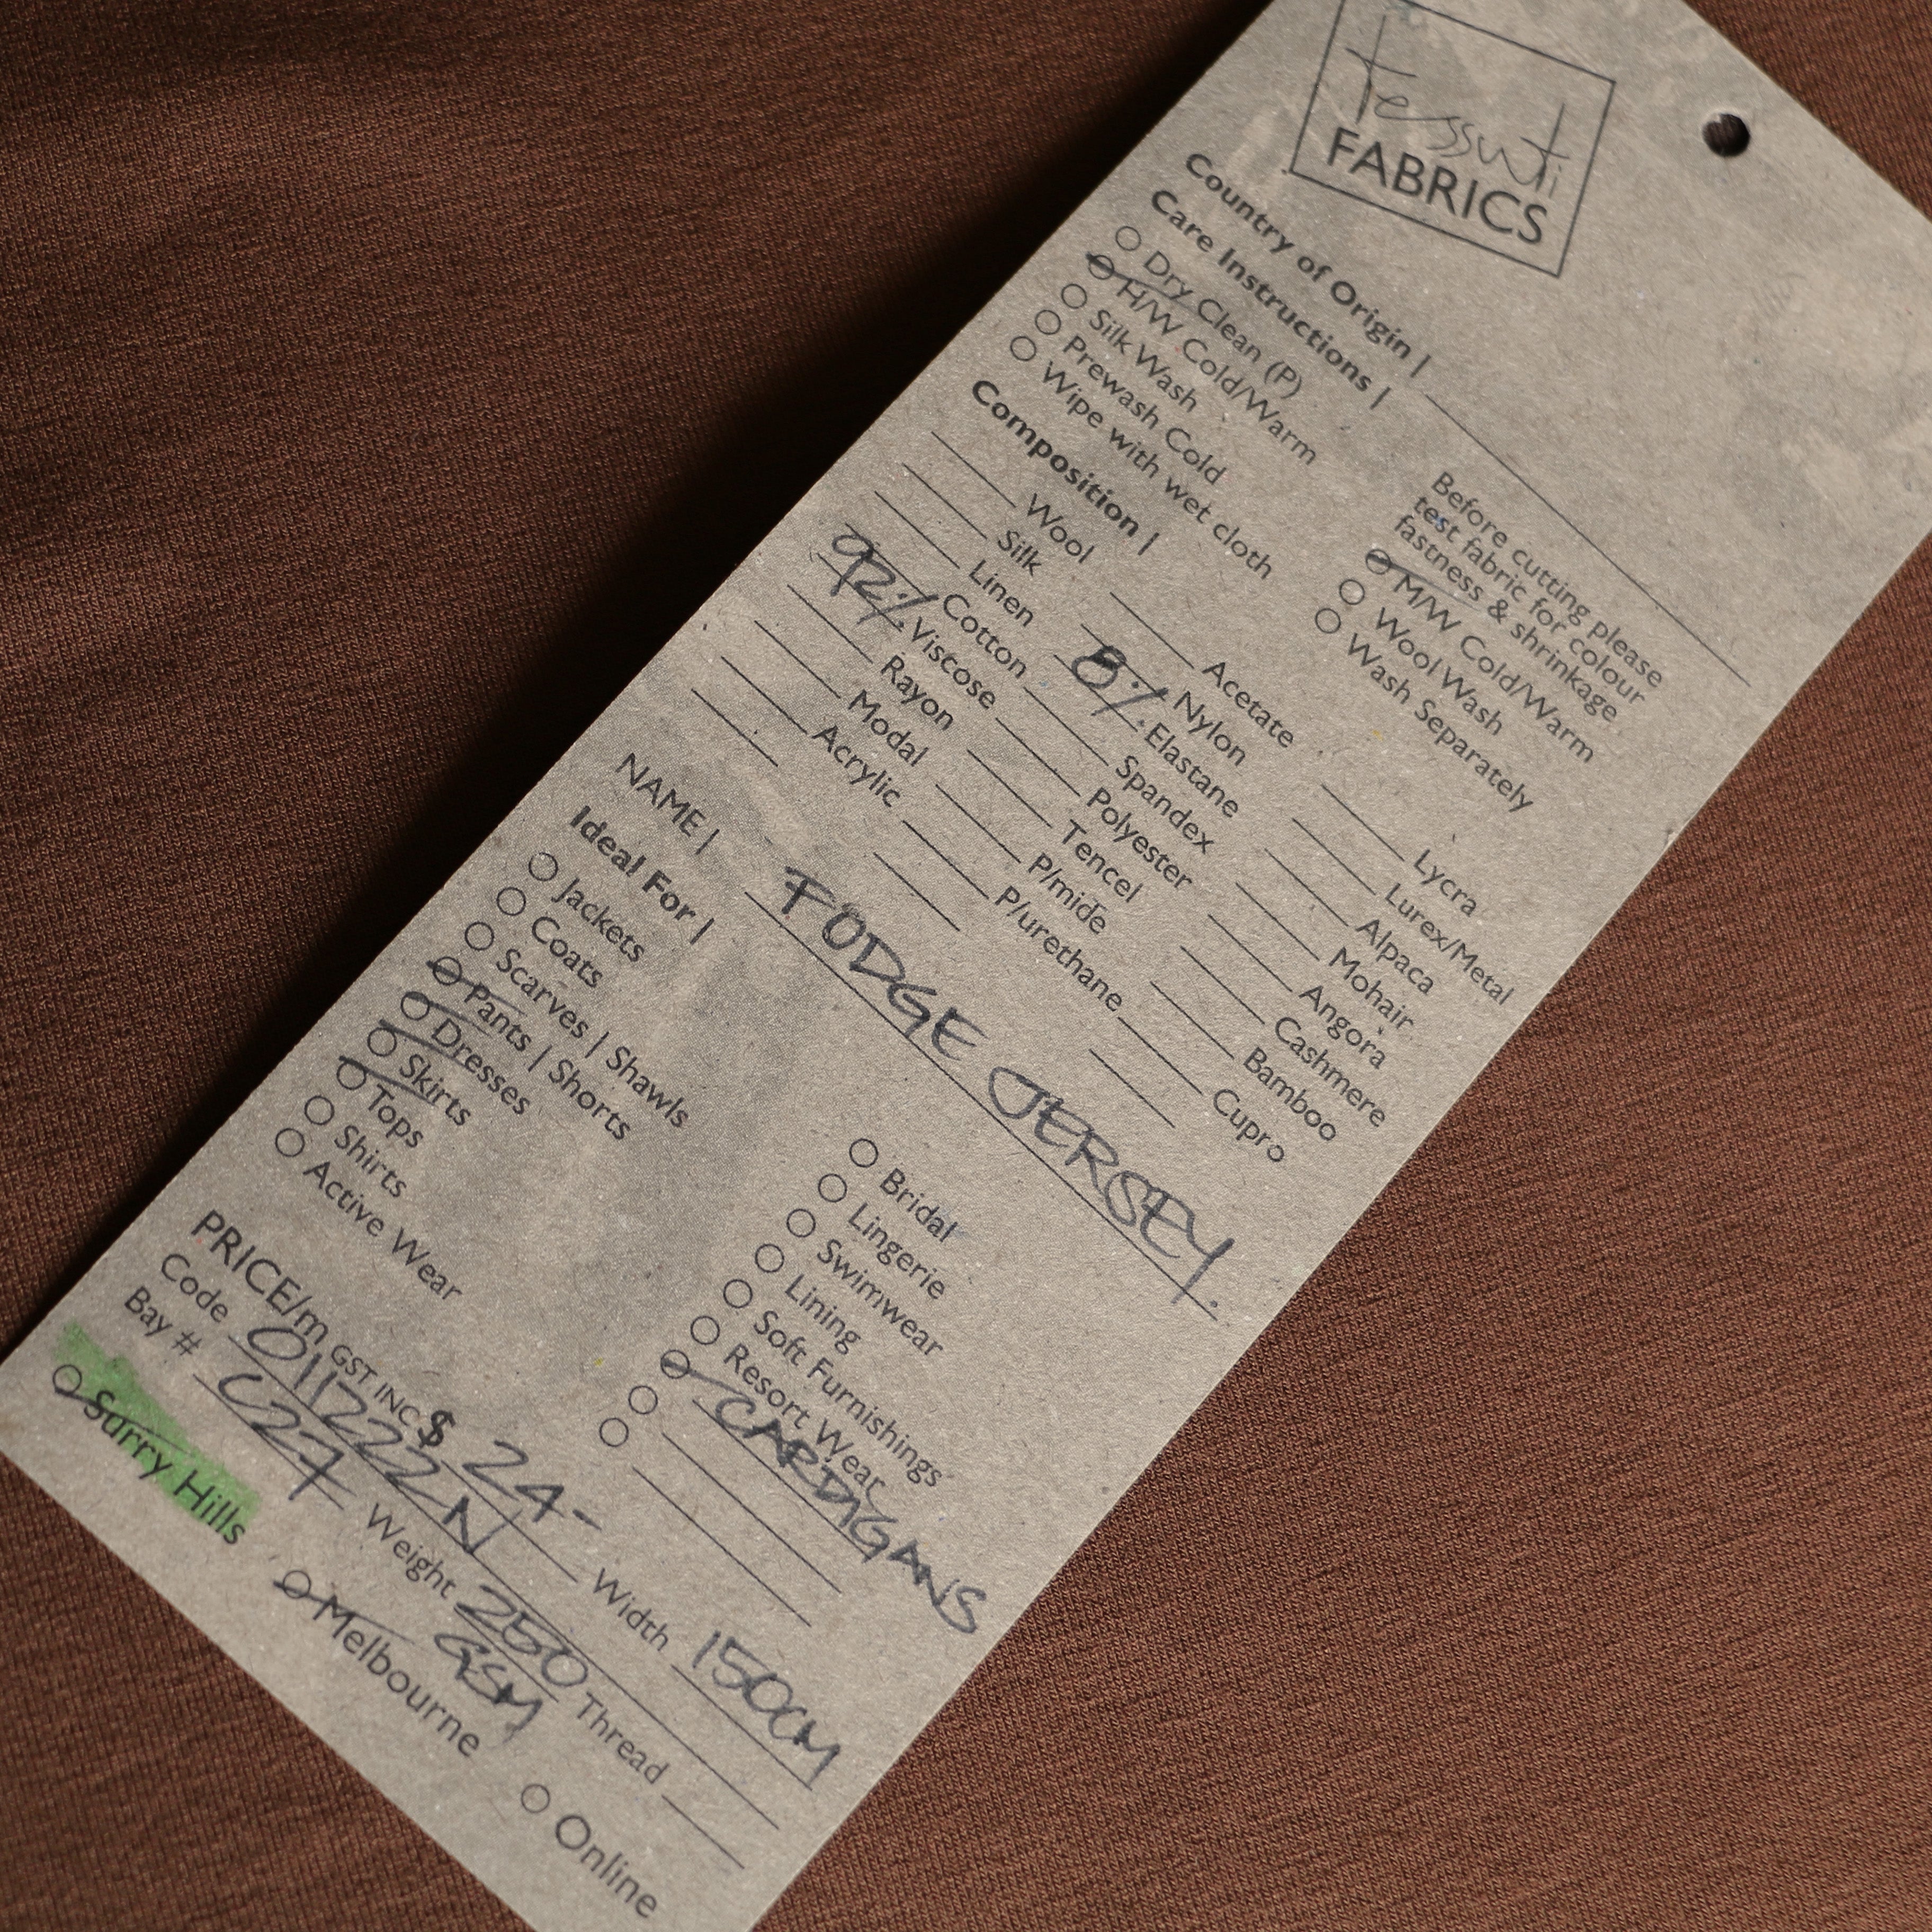 tessuti
FABRICS
Country of Origin |
Care Instructions |
Dry Clean (P)
H/W Cold/Warm
Silk Wash
Prewash Cold
Wipe with wet cloth
Before cutting please
test fabric for colour
fastness & shrinkage
M/W Cold/Warm
Wool Wash
Wash Separately
Composition |
Wool
Silk
Linen
Cotton
92% Viscose
Rayon
Modal
Acrylic
Acetate
Nylon
8% Elastane
Spandex
Polyester
Tencel
P/mide
P/urethane
Lycra
Lurex/Metal
Alpaca
Mohair
Angora
Cashmere
Bamboo
Cupro
NAME | FODGE JERSEY.
Ideal For |
Jackets
Coats
Scarves | Shawls
Pants | Shorts
Dresses
Skirts
Tops
Shirts
Active Wear
Bridal
Lingerie
Swimwear
Lining
Soft Furnishings
Resort Wear
CARDIGANS
PRICE/m GST INC $ 24-
Code 011222N Width 150CM
Bay # C27 Weight 250 GSM Thread
Surry Hills Melbourne Online